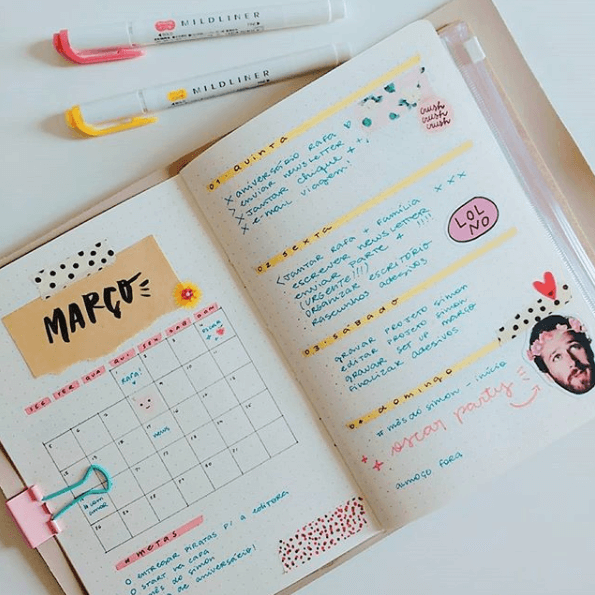 MILDLINER
MILDLINER
MARÇO
SEG TER QUA QUI SEX SAB DOM
RAFA!
news
# metas
O ENTREGAR PIRATAS P/ A EDITORA
O START NA CAPA
MÊS DO SIMON
DE ANIVERSÁRIO!
01. quinta
x ANIVERSÁRIO RAFA
x ENVIAR NEWSLETTER
x JANTAR CHIQUE
x E-MAIL VIAGEM
crush
crush
crush
02. sexta
(JANTAR RAFA + FAMÍLIA
ESCREVER NEWSLETTER
ENVIAR PARTE
(URGENTE!!!)
ORGANIZAR ESCRITÓRIO
RASCUNHOS ADESIVOS
LOL
NO
03. sábado
GRAVAR PROJETO SIMON
EDITAR PROJETO SIMON
GRAVAR SET UP MARSO
FINALIZAR ADESIVOS
04. domingo
# MÊS DO SIMON - INÍCIO
oscar party
ALMOÇO FORA